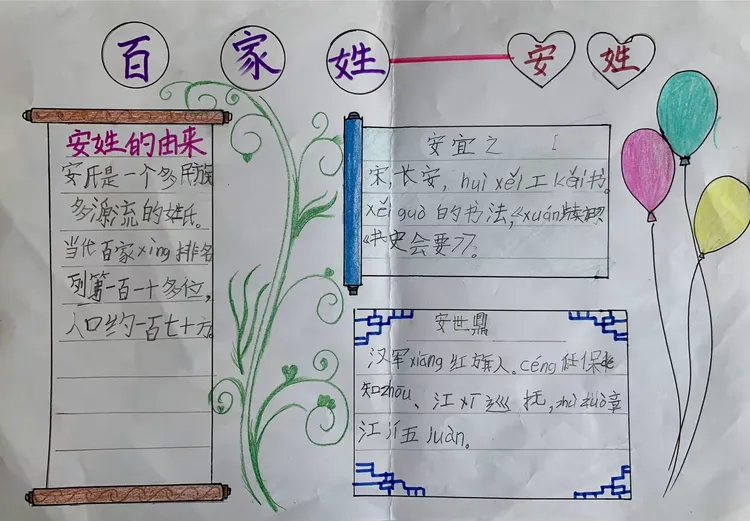 百家姓 安姓
安姓的由来
安氏是一个多民族
多源流的姓氏。
当代百家xìng排名
列第一百一十多位,
人口约一百七十万。
安宜之
宋,长安,huì xěi工kěi书。
xěi guò的书法,《xuán
《共史会要77。
安世鼎
汉军xiāng红旗人。céng任保
知zhōu、江 巡 抚,zhù zuò章
江 五juàn。